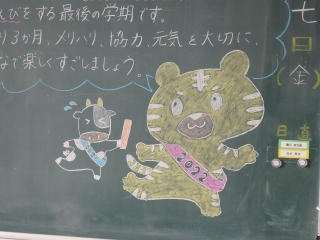 んびをする最後の学期です。
り3か月、メリハリ、協力、元気を大切に、
なで楽しくすごしましょう。
七
日
(金)
日直
2022